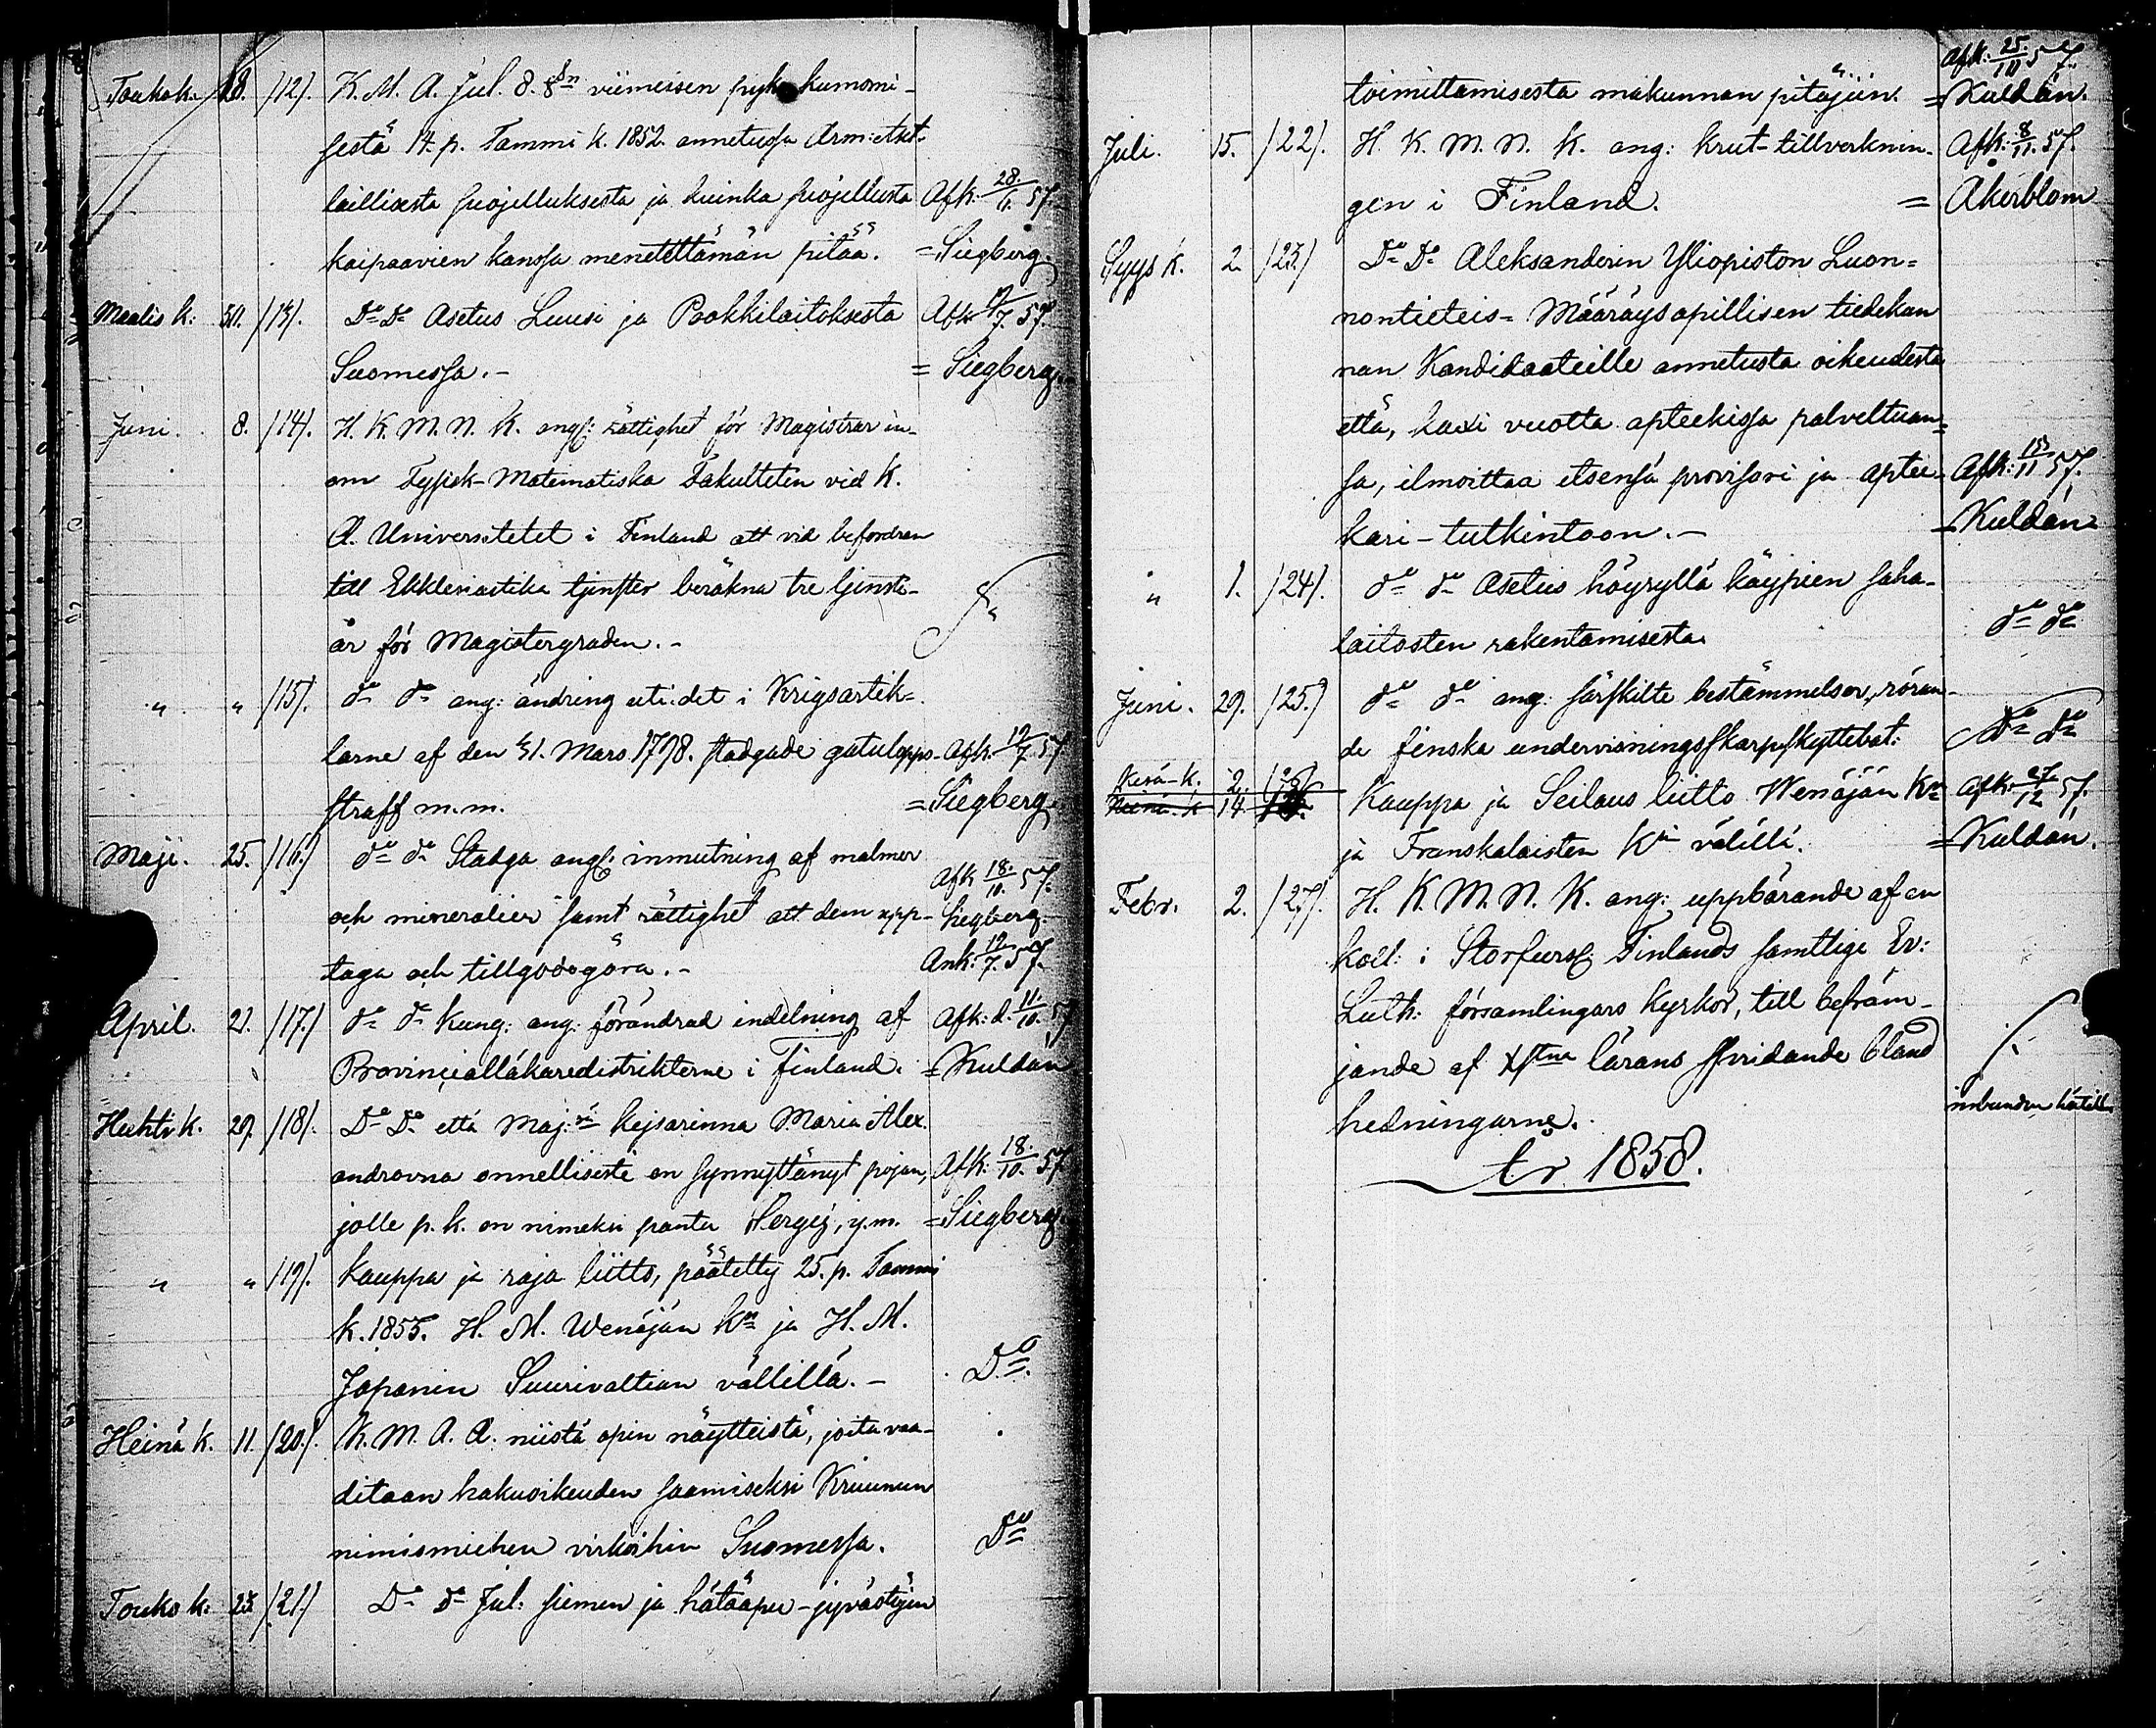 Toukok. 18. /12/. K. M. A. Jul. 8. 8 §n viimeisen pyk kumomi-
sestä 14. p. Tammi k. 1852. annetussa Arm: Aset.
laillisesta suojelluksesta ja kuinka suojellusta Afk: 28/6. 57.
kaipaavien kanssa menetettämän pitää. = Siegberg.
Maalis k. 30. /13/. Do Do Asetus Luusi ja Pookkilaitoksesta Afk 57.
Suomessa. - = Siegberg.
Juni. 8. /14/. H. K. M. N. K. ang: rättighet för Magistrar in-
om Fysisk-Matematiska Fakulteten vid K.
A. Universitetet i Finland att vid befordran
till Ekklesiastika tjenster beräkna tre tjenste-
år för Magistergraden. -
" " /15/. do do ang: ändring uti det i Krigsartik-
larne af den 31. Mars 1798. stadgade gatulopps- Afk: 19/7 57
straff m.m. = Siegberg
Maji. 25. /16./ do do Stadga ang: inmutning af malmer
Afk 18./10. 57.
och mineralier samt rättighet att dem upp- Siegberg.
taga och tillgodogöra. - Ank: 19/7. 57.
April. 21. /17./ do do Kung: ang: förändrad indelning af Afk: d. 11./10. 57
Provinciälläkaredistrikterne i Finland. = Kuldán
Huhti k. 29. /18/. Do Do että Maj:  Kejsarinna Maria Alex.
androvna onnellisesti on synnyttänyt pojan, Afk: 18./10. 57
jolle p. k. on nimeksi pantu Sergej, y.m. = Siegberg.
" " /19/. Kauppa ja raja liitto, päätetty 25. p. Tammi
k. 1855. H. M. Wenäjän Kn ja H. M.
Japanin Suurivaltian välillä. - Do.
Heinä k. 11. /20./. K. M. A. A. niistä opin näytteistä, joita vaa-
ditaan hakuoikeuden saamiseksi Kruunun
nimismiehen virkoihin Suomessa. Do
Touko k. 23. /21./ Do Do Jul: siemen ja hätäapu-jyvästöjen
Afk: 25./10 57.
toimittamisesta makunnan pitäjiin. = Kuldán.
Juli. 15. /22/. H. K. M. N. K. ang: krut-tillverknin- Afk: 8/11. 57.
gen i Finland. = Akerblom
Syys k. 2. /23./ Do Do Aleksanderin Yliopiston Luon=
nontieteis= Määräysopillisen tiedekun
nan Kandidaateille annetusta oikeudesta
että, kaxi vuotta apteekissa palveltuan=
sa, ilmoittaa itsensä provisori ja aptee- Afk: 15/11 57.
kari-tutkintoon. - = Kuldán
" 1. /24/. do do Asetus höyryllä käypien saha-
laitosten rakentamisesta. do do
Juni. 29. /25./ do do ang: särskilte bestämmelser, röran-
de finska undervisningsskarpskyttebat: Do Do
Kesä-k. 2. /26/
Heinä-k 14. Kauppa ja Seilaus liitto Wenäjän Kn Afk: 27/12 57.
ja Franskalaisten Kn välilli. = Kuldán.
Febr. 2. /27/. H. K. M. N. K. ang: uppbärande af en
koll: i Storfursf: Finlands samttige Ev:
Luth: församlingars kyrkor, till befräm-
jande af Xstna lärans spridande bland
hedningarne. inbunden härtill
År 1858.